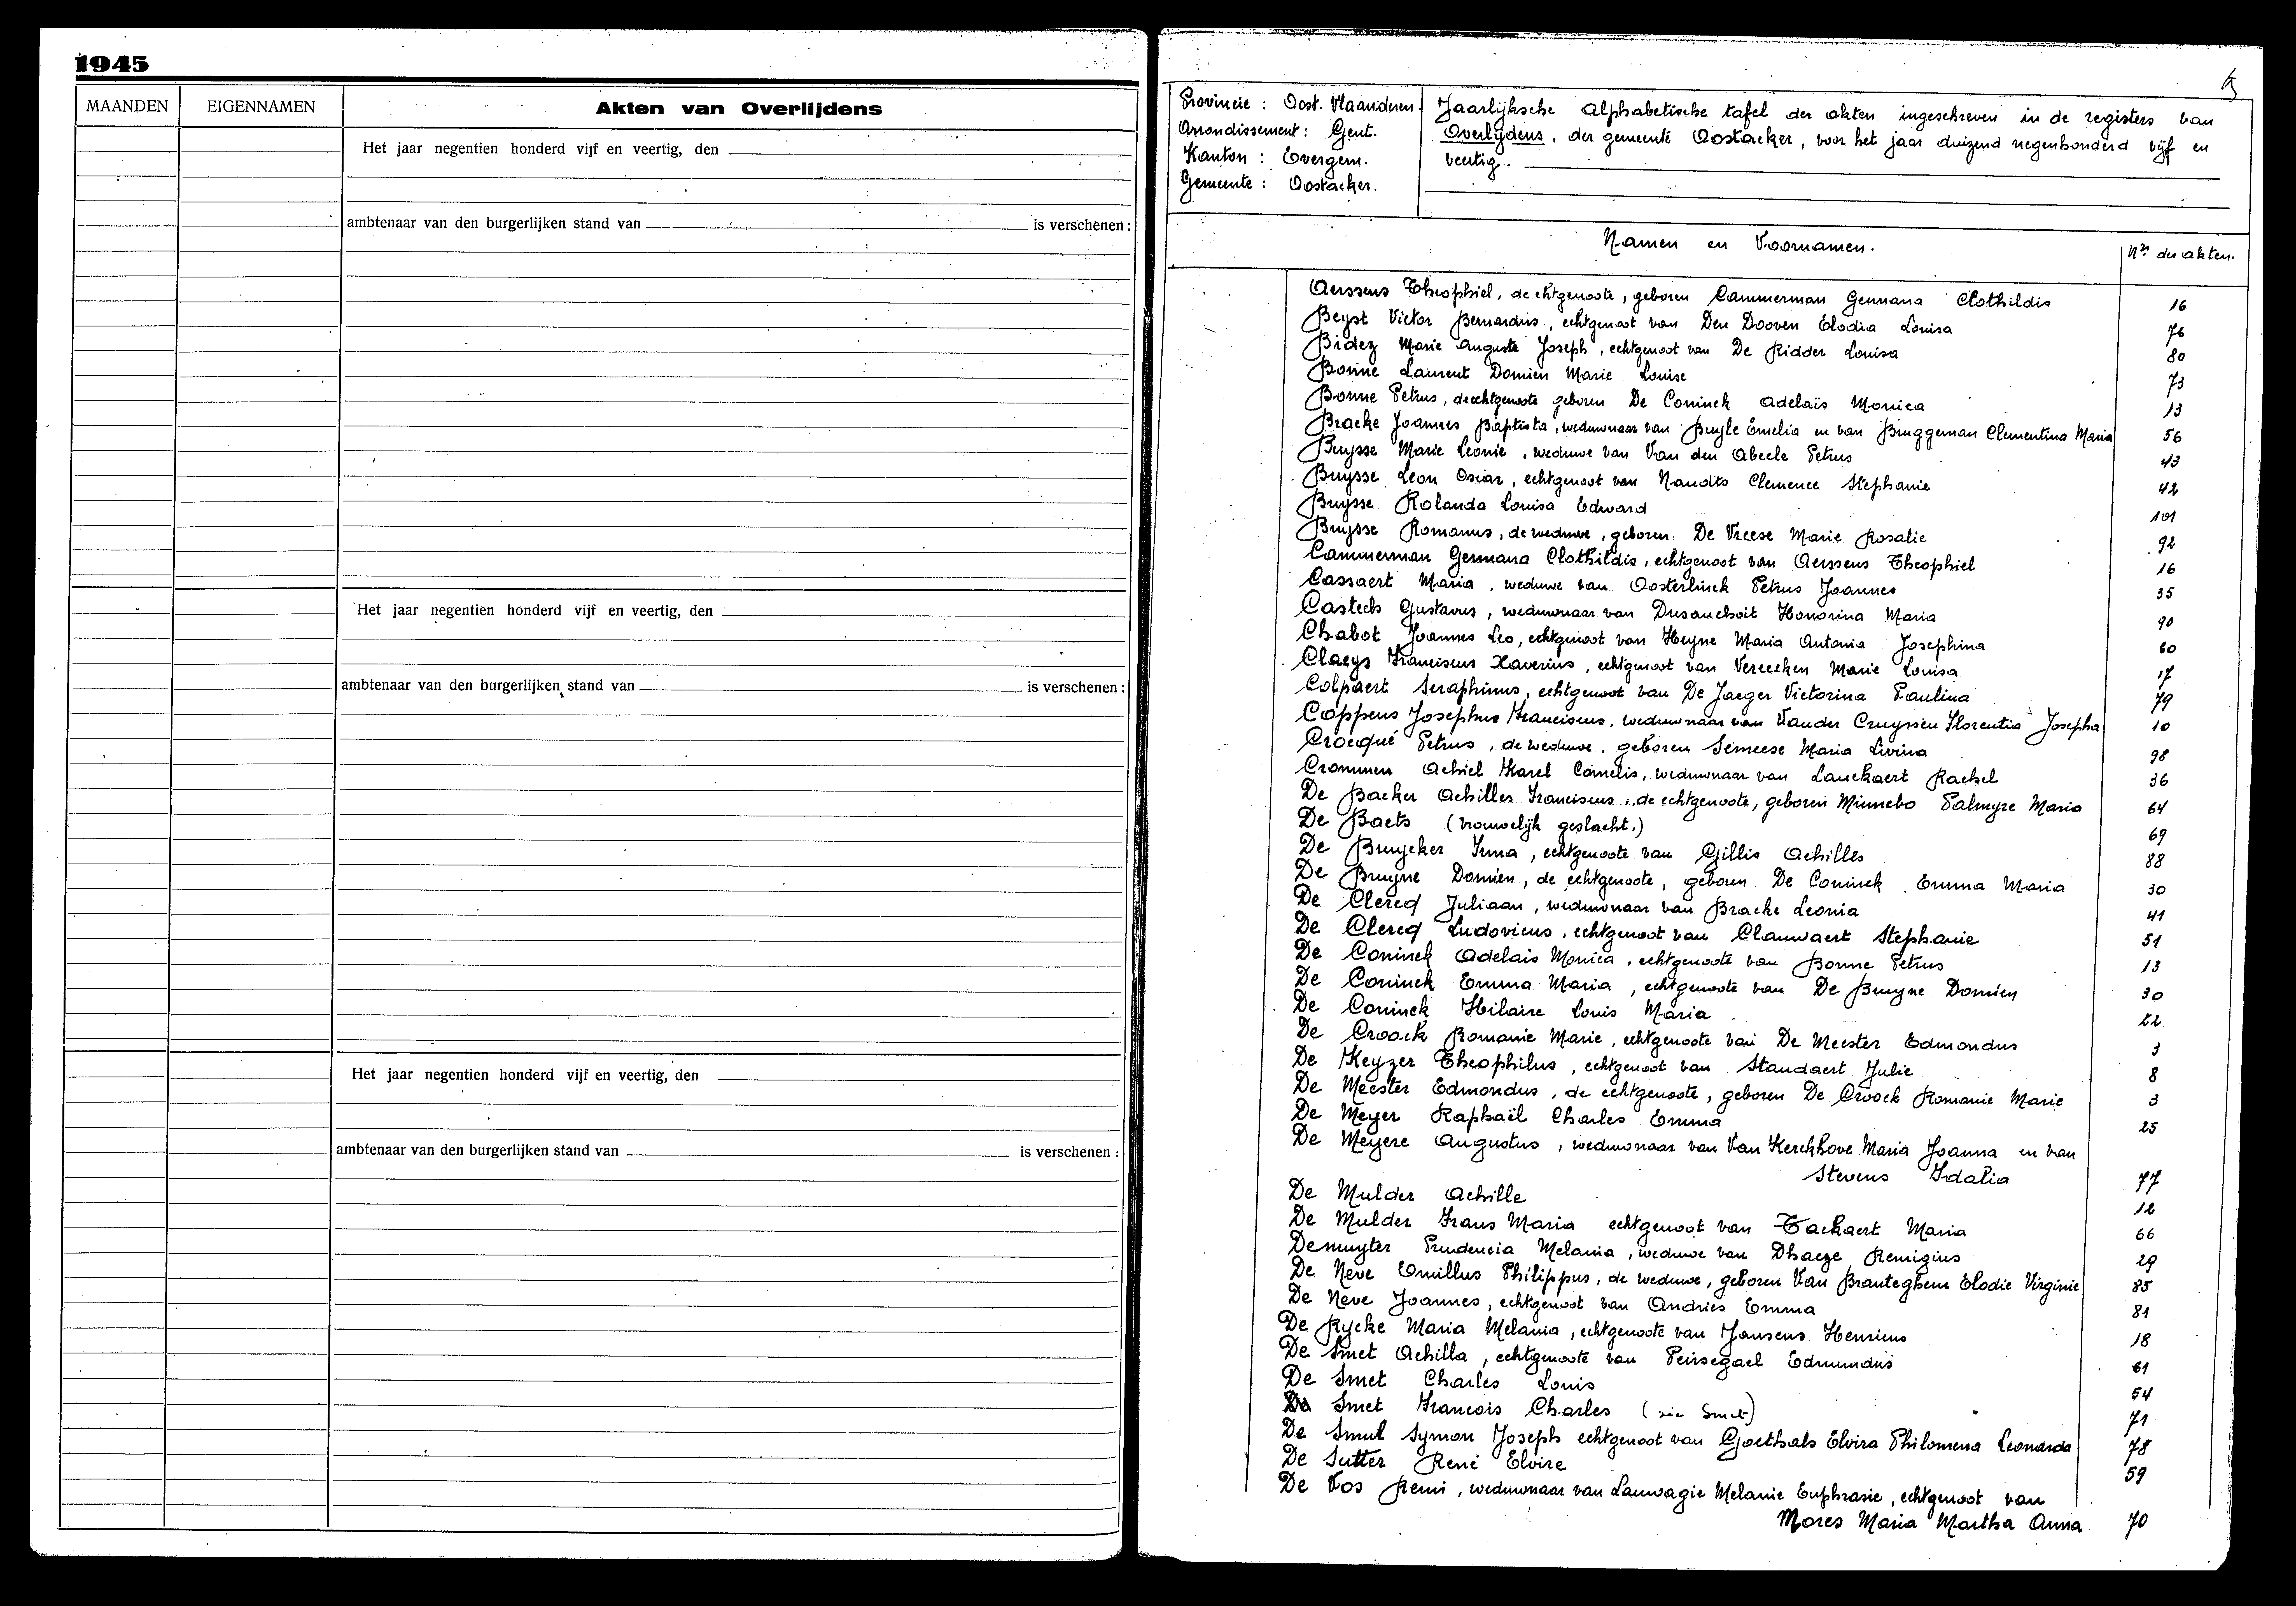 1945
MAANDEN
EIGENNAMEN
Akten van Overlijdens
Het jaar negentien honderd vijf en veertig, den
ambtenaar van den burgerlijken stand van
is verschenen :
Het jaar negentien honderd vijf en veertig, den
ambtenaar van den burgerlijken stand van
is verschenen :
Het jaar negentien honderd vijf en veertig, den
ambtenaar van den burgerlijken stand van
is verschenen :
Provincie : Oost. Vlaanderen.
Arrondissement : Gent.
Kanton : Evergem.
Gemeente : Oostacker.
Jaarlijksche alphabetische tafel der akten ingeschreven in de registers van
Overlijdens, der gemeente Oostacker, voor het jaar duizend negenhonderd vijf en
veertig.
Namen en Voornamen.
Nrs der akten.
Aerssens Theophiel, de echtgenoote, geboren Cammerman Germana Clothildis 16
Beyst Victor Bernardus, echtgenoot van Den Dooven Elodia Louisa 76
Bidez Marie Auguste Joseph, echtgenoot van De Ridder Louisa 80
Bonne Laurent Domien Marie Louise 73
Bonne Petrus, de echtgenoote geboren De Coninck Adelaïs Monica 13
Bracke Joannes Baptista, weduwnaar van Buyle Emelia en van Bruggeman Clementina Maria 56
Buysse Marie Leonie, weduwe van Van den Abeele Petrus 43
Buysse Leon Oscar, echtgenoot van Naudts Clemence Stephanie 42
Buysse Rolanda Louisa Edward 101
Buysse Romanus, de weduwe, geboren De Vreese Marie Rosalie 92
Cammerman Germana Clothildis, echtgenoot van Aerssens Theophiel 16
Cassaert Maria, weduwe van Oosterlinck Petrus Joannes 35
Casteels Gustavus, weduwnaar van Dusauchoit Honorina Maria 90
Chabot Joannes Leo, echtgenoot van Heyne Maria Antonia Josephina 60
Claeys Franciscus Xaverius, echtgenoot van Vereecken Marie Louisa 17
Colpaert Seraphinus, echtgenoot van De Jaeger Victorina Paulina 79
Coppens Josephus Franciscus, weduwnaar van Vander Cruyssen Florentia Josepha 10
Crocqué Petrus, de weduwe, geboren Semeese Maria Livina 98
Crommen Achiel Karel Cornelis, weduwnaar van Lanckaert Rachel 36
De Backer Achilles Franciscus, de echtgenoote, geboren Minnebo Palmyre Maria 64
De Baets (vrouwelijk geslacht.) 69
De Bruycker Irma, echtgenoote van Gillis Achilles 88
De Bruyne Domien, de echtgenoote, geboren De Coninck Emma Maria 30
De Clercq Juliaan, weduwnaar van Bracke Leonia 41
De Clercq Ludovicus, echtgenoot van Clauwaert Stephanie 51
De Coninck Adelais Monica, echtgenoote van Bonne Petrus 13
De Coninck Emma Maria, echtgenoote van De Bruyne Domien 30
De Coninck Hilaire Louis Maria 22
De Croock Romanie Marie, echtgenoote van De Meester Edmondus 3
De Keyzer Theophilus, echtgenoot van Standaert Julie 8
De Meester Edmondus, de echtgenoote, geboren De Croock Romanie Marie 3
De Meyer Raphaël Charles Emma 25
De Meyere Augustus, weduwnaar van Van Kerckhove Maria Joanna en van
Stevens Idalia 77
De Mulder Achille 12
De Mulder Frans Maria echtgenoot van Tackaert Maria 66
Demuyter Prudencia Melania, weduwe van Dhaeze Remigius 29
De Neve Emillus Philippus, de weduwe, geboren Van Branteghem Elodie Virginie 85
De Neve Joannes, echtgenoot van Andries Emma 81
De Rycke Maria Melania, echtgenoote van Jansens Henricus 18
De Smet Achilla, echtgenoote van Peirsegael Edmundus 61
De Smet Charles Louis 54
De Smet Francois Charles (zie Smet) 71
De Smul Symon Joseph echtgenoot van Goethals Elvira Philomena Leonarda 78
De Sutter René Elvire 59
De Vos Remi, weduwnaar van Lauwagie Melanie Euphrasie, echtgenoot van
Mores Maria Martha Anna 70